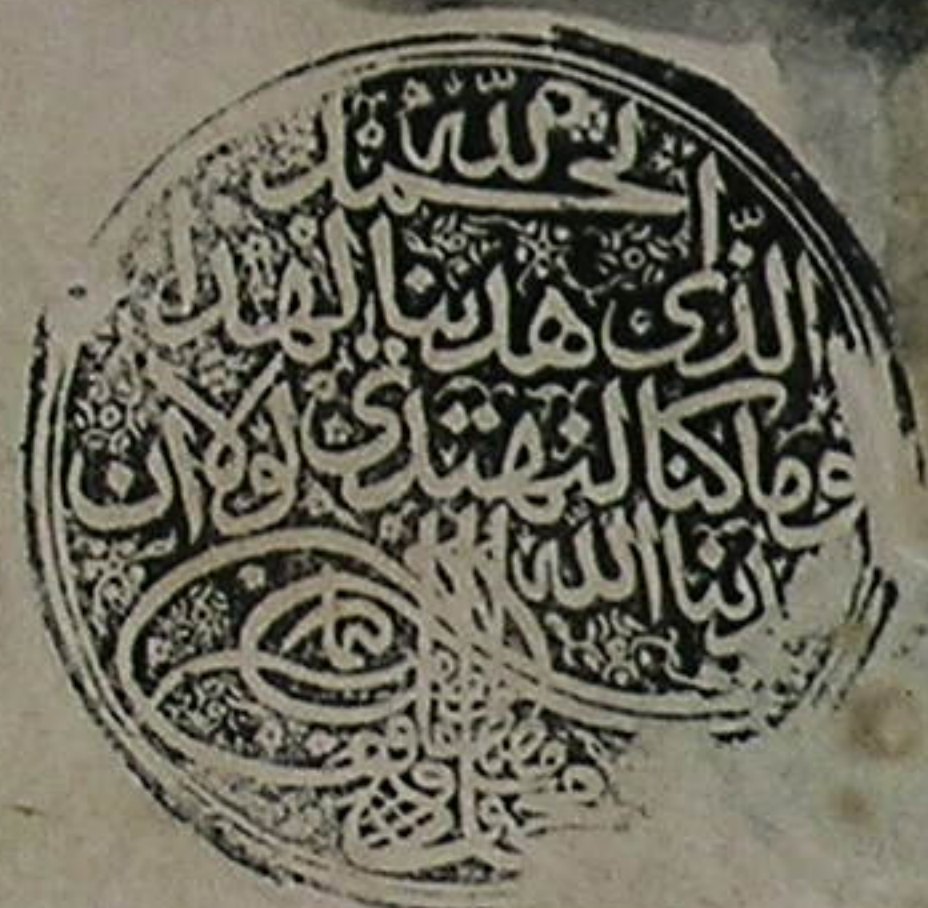 الحمد لله
الذى هدينا لهذا
وما كنا لنهتدى لولا ان
ينا الله